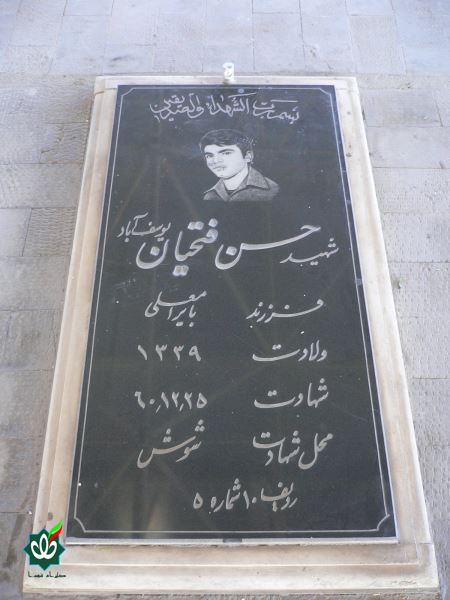 بسم رب الشهداء والصدیقین
شهید حسن فتحیان یوسف آباد
فرزند بایرامعلی
ولادت ۱۳۳۹
شهادت ۶۰٫۱۲٫۲۵
محل شهادت شوش
ردیف ۱۰ شماره ۵